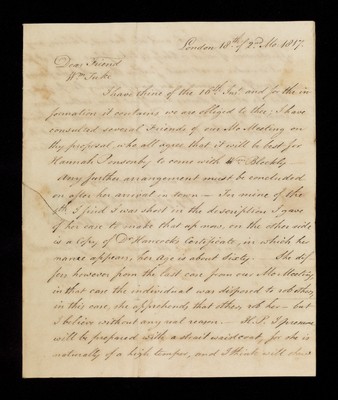 London 18th of 2nd Mo 1817.
Dear Friend
Wm Tuke
I have thine of the 16th Inst. and for the in
formation it contains we are obliged to thee; I have
consulted several Friends of our Mo Meeting on
thy proposal, who all agree that it will be best for
Hannah Ponsonby to come with Wm Bleckly
Any further arrangement must be concluded
on after her arrival in town — For mine of the
4th I find I was short in the description I gave
of her case to make that up now, on the other side
is a copy of Dr Hancock's Certificate, in which her
name appears, her Age is about Sixty. — She dif
fers however from the last case from our Mo Meeting
in that case the individual was disposed to rob others,
in this case, she apprehends that others rob her — but
I believe without any real reason. — H. P. I presume
will be prepared with a strait waistcoat, for she is
naturally of a high temper, and I think will